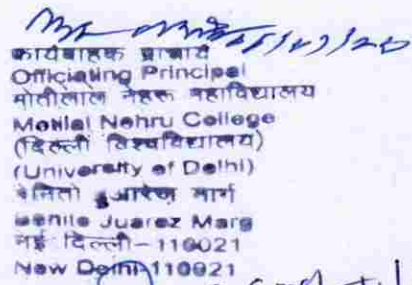 कार्यवाहक प्राचार्य
Officiating Principal
मोतीलाल नेहरू महाविद्यालय
Motilal Nehru College
(दिल्ली विश्वविद्यालय)
(University of Delhi)
बेनितो जुआरेज मार्ग
Benito Juarez Marg
नई दिल्ली-110021
New Delhi-110021